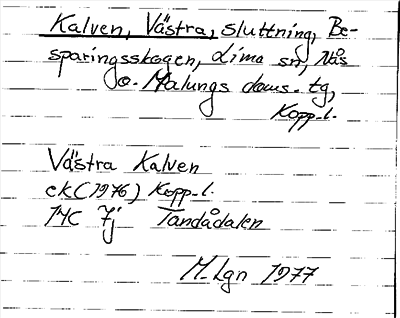 Kalven, Västra, sluttning, Be-
sparingsskogen, Lima sn, Nås
o. Malungs doms. tg,
Kopp.l.
Västra Kalven
ek(1976) Kopp.l.
14C 7j Tandådalen
M-Lgn 1977